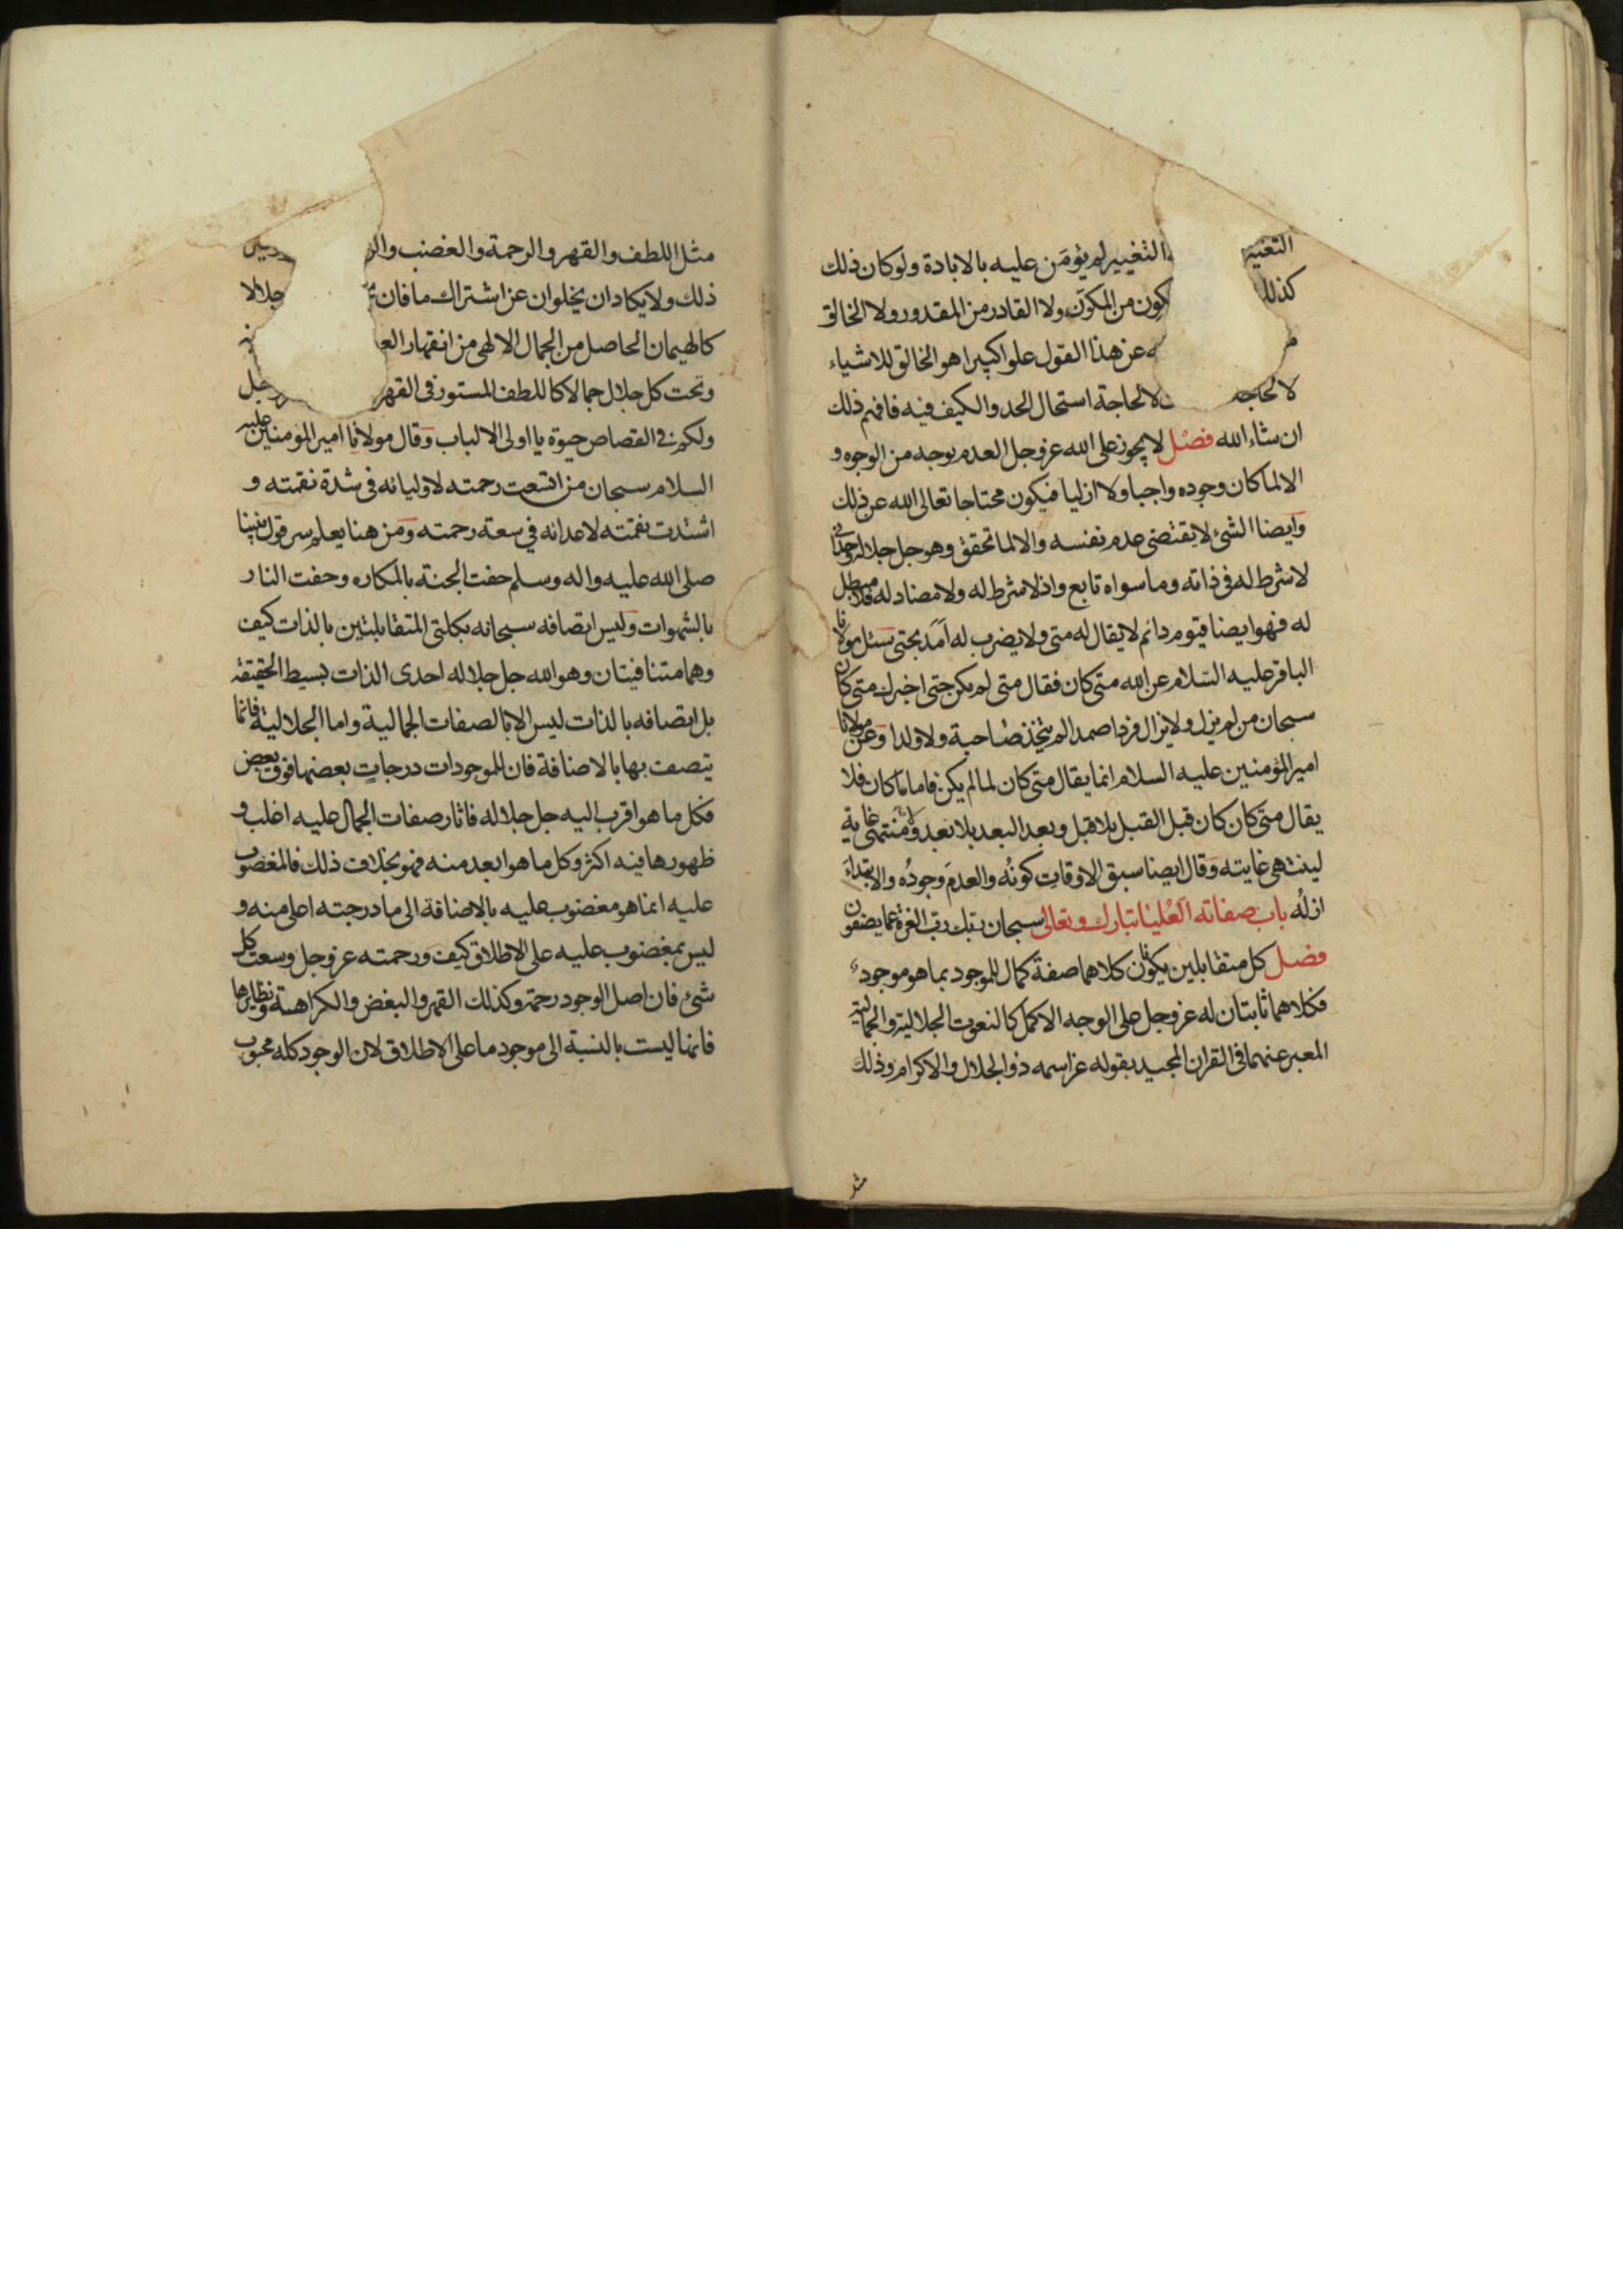 التغيير التغيير لم يؤمن عليه بالابادة ولو كان ذلك
كذلك كون من المكون ولا القادر من المقدور ولا الخالق
عن هذا القول علوا كبيرا هو الخالق للاشياء
لا لحاجة لا لحاجة استحال الحد والكيف فيه فافهم ذلك
ان شاء الله فصل لا يجوز على الله عز وجل العدم بوجه من الوجوه و
الا لما كان وجوده واجبا ولا ازليا فيكون محتاجا تعالى الله عن ذلك
وايضا الشئ لا يقتضى عدم نفسه والا لما تحقق وهو جل جلاله وحدانى
لا شرط له فى ذاته وما سواه تابع واذ لا شرط له ولا مضاد له فلا مبطل
له فهو ايضا قيوم دائم لا يقال له متى ولا يضرب له امد بحتى سئل مولانا
الباقر عليه السلام عن الله متى كان فقال متى لم يكن حتى اخبرك متى كان
سبحان من لم يزل ولا يزال فردا صمدا لم يتخذ صاحبة ولا ولدا وعن مولانا
امير المؤمنين عليه السلام انما يقال متى كان لما لم يكن فاما ما كان فلا
يقال متى كان كان قبل القبل بلا قبل وبعد البعد بلا بعد ولا منتهى غاية
لينتهى غايته وقال ايضا سبق الاوقات كونه والعدم وجوده والابتداء
ازله باب صفاته العليا تبارك وتعالى سبحان ربك رب العزة عما يصفون
فصل كل متقابلين يكون كلاهما صفة كمال للموجود بما هو موجود
فكلاهما ثابتان له عز وجل على الوجه الاكمل كالنعوت الجلالية والجمالية
المعبر عنهما فى القران المجيد بقوله عز اسمه ذو الجلال والاكرام وذلك
مثل
مثل اللطف والقهر والرحمة والغضب
ذلك ولا يكاد ان يخلوان عن اشتراك ما فان جلالا
كالهيمان الحاصل من الجمال الالهى من انقهار
وتحت كل جلال جمالا كاللطف المستور فى القهر وجل
ولكم فى القصاص حيوة يا اولى الالباب وقال مولانا امير المؤمنين عليه
السلام سبحان من اتسعت رحمته لاوليائه فى شدة نقمته و
اشتدت نقمته لاعدائه فى سعة رحمته ومن هنا يعلم سر قول نبينا
صلى الله عليه واله وسلم حفت الجنة بالمكاره وحفت النار
بالشهوات وليس اتصافه سبحانه بكلتى المتقابلتين بالذات كيف
وهما متنافيتان وهو الله جل جلاله احدى الذات بسيط الحقيقة
بل اتصافه بالذات ليس الا بالصفات الجمالية واما الجلالية فانما
يتصف بها بالاضافة فان للموجودات درجات بعضها فوق بعض
فكل ما هو اقرب اليه جل جلاله فاثار صفات الجمال عليه اغلب و
ظهورها فيه اكثر وكل ما هو ابعد منه فهو بخلاف ذلك فالمغضوب
عليه انما هو مغضوب عليه بالاضافة الى ما درجته اعلى منه و
ليس بمغضوب عليه على الاطلاق كيف ورحمته عز وجل وسعت كل
شئ فان اصل الوجود رحمة وكذلك القهر والبغض والكراهة ونظايرها
فانها ليست بالنسبة الى موجود ما على الاطلاق لان الوجود كله محبوب